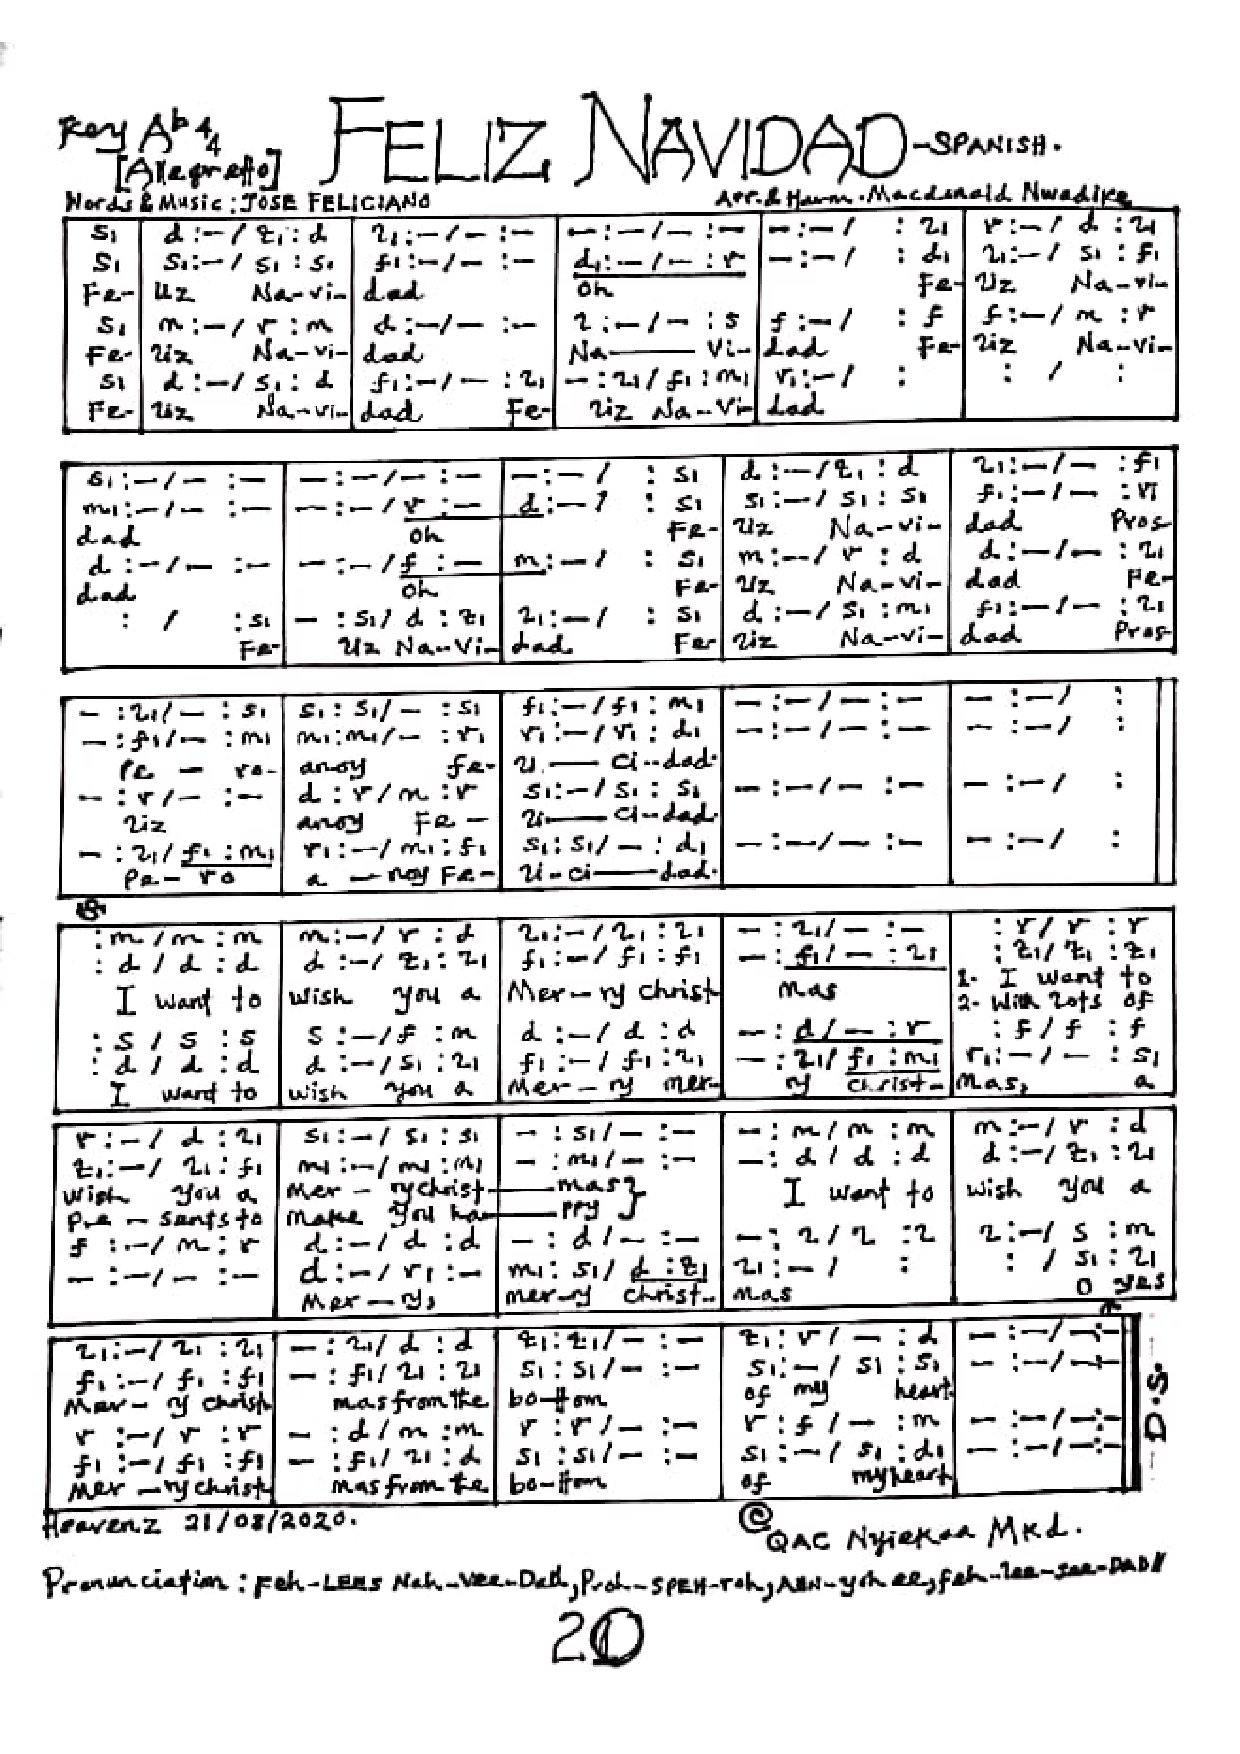 Key Ab 4/4 FELIZ NAVIDAD - SPANISH.
[Allegretto]
Words & Music: JOSE FELICIANO Arr. & Harm. Macdonald Nwadike
s₁ | d :- / t₁ : d | l₁ :- / - :- | - :- / - :- | - :- / : l₁ | r :- / d : l₁
s₁ | s₁ :- / s₁ : s₁ | f₁ :- / - :- | d₁ :- / - : r | - :- / : d₁ | l₁ :- / s₁ : f₁
Fe- | liz Na-vi- | dad | Oh | Fe- | liz Na-vi-
s₁ | m :- / r : m | d :- / - :- | l :- / - : s | f :- / : f | f :- / m : r
Fe- | liz Na-vi- | dad | Na — Vi- | dad Fe- | liz Na-vi-
s₁ | d :- / s₁ : d | f₁ :- / - : l₁ | - : l₁ / f₁ : m₁ | r₁ :- / : | : / :
Fe- | liz Na-vi- | dad Fe- | liz Na-Vi- | dad
s₁ :- / - :- | - :- / - :- | - :- / : s₁ | d :- / t₁ : d | l₁ :- / - : f₁
m₁ :- / - :- | - :- / r :- | d :- / : s₁ | s₁ :- / s₁ : s₁ | f₁ :- / - : r₁
dad | Oh | Fe- | liz Na-vi- | dad Pros-
d :- / - :- | - :- / f :- | m :- / : s₁ | m :- / r : d | d :- / - : l₁
dad | Oh | Fe- | liz Na-vi- | dad Fe-
: / : s₁ | - : s₁ / d : t₁ | l₁ :- / : s₁ | d :- / s₁ : m₁ | f₁ :- / - : l₁
Fe- | liz Na-Vi- | dad Fe- | liz Na-vi- | dad Pros-
- : l₁ / - : s₁ | s₁ : s₁ / - : s₁ | f₁ :- / f₁ : m₁ | - :- / - :- | - :- / :
- : f₁ / - : m₁ | m₁ : m₁ / - : r₁ | r₁ :- / r₁ : d₁ | - :- / - :- | - :- / :
Pe - ro- | anoy fe- | li — ci-dad.
- : r / - :- | d : r / m : r | s₁ :- / s₁ : s₁ | - :- / - :- | - :- / :
liz | anoy Fe- | li — ci-dad.
- : l₁ / f₁ : m₁ | r₁ :- / m₁ : f₁ | s₁ : s₁ / - : d₁ | - :- / - :- | - :- / :
Pe-ro | a -noy Fe- | li-ci — dad.
: m / m : m | m :- / r : d | l₁ :- / l₁ : l₁ | - : l₁ / - :- | : r / r : r
: d / d : d | d :- / t₁ : l₁ | f₁ :- / f₁ : f₁ | - : f₁ / - : l₁ | : t₁ / t₁ : t₁
I want to | wish you a | Mer-ry christ | mas | 1- I want to
2- With lots of
: s / s : s | s :- / f : m | d :- / d : d | - : d / - : r | : f / f : f
: d / d : d | d :- / s₁ : l₁ | f₁ :- / f₁ : l₁ | - : l₁ / f₁ : m₁ | r₁ :- / - : s₁
I want to | wish you a | Mer-ry mer- | ry christ- | mas, a
r :- / d : l₁ | s₁ :- / s₁ : s₁ | - : s₁ / - :- | - : m / m : m | m :- / r : d
t₁ :- / l₁ : f₁ | m₁ :- / m₁ : m₁ | - : m₁ / - :- | - : d / d : d | d :- / t₁ : l₁
Wish you a | Mer - ry christ — mas } | I want to | wish you a
Pre - sents to | Make you ha — ppy }
f :- / m : r | d :- / d : d | - : d / - :- | - : l / l : l | l :- / s : m
- :- / - :- | d :- / r₁ :- | m₁ : s₁ / d : t₁ | l₁ :- / : | : / s₁ : l₁
Mer-ry, | mer-ry christ- | mas | O yes
l₁ :- / l₁ : l₁ | - : l₁ / d : d | t₁ : t₁ / - :- | t₁ : r / - : d | - :- / - :-
f₁ :- / f₁ : f₁ | - : f₁ / l₁ : l₁ | s₁ : s₁ / - :- | s₁ :- / s₁ : s₁ | - :- / - :-
Mer- ry christ | mas from the | bo-ttom | of my heart
r :- / r : r | - : d / m : m | r : r / - :- | r : f / - : m | - :- / - :-
f₁ :- / f₁ : f₁ | - : f₁ / l₁ : d | s₁ : s₁ / - :- | s₁ :- / s₁ : d₁ | - :- / - :-
Mer -ry christ | mas from the | bo-ttom | of my heart
D.S.
Heavenz 21/08/2020. © QAC Nyiekaa Mkd.
Pronunciation: Feh-LEES Nah-Vee-Dad, Proh-SPEH-roh, AEN-yoh ee, feh-lee-see-DAD//
20